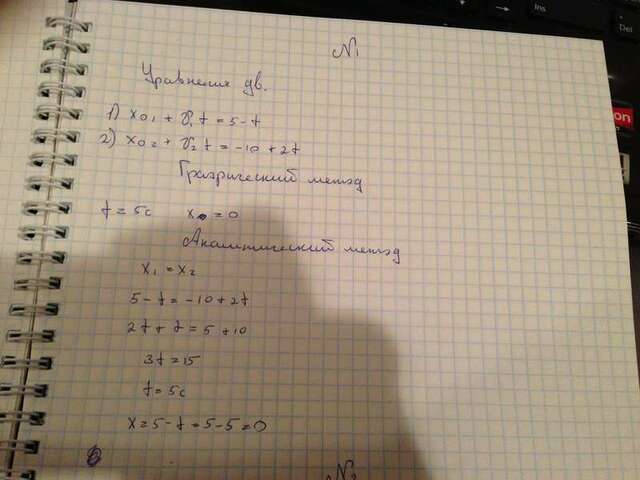 N1
Уравнения дв.
1) x01 + v1t = 5 - t
2) x02 + v2t = -10 + 2t
Графический метод
t = 5c x = 0
Аналитический метод
x1 = x2
5 - t = -10 + 2t
2t + t = 5 + 10
3t = 15
t = 5c
x = 5 - t = 5 - 5 = 0
N2
Ins
Del